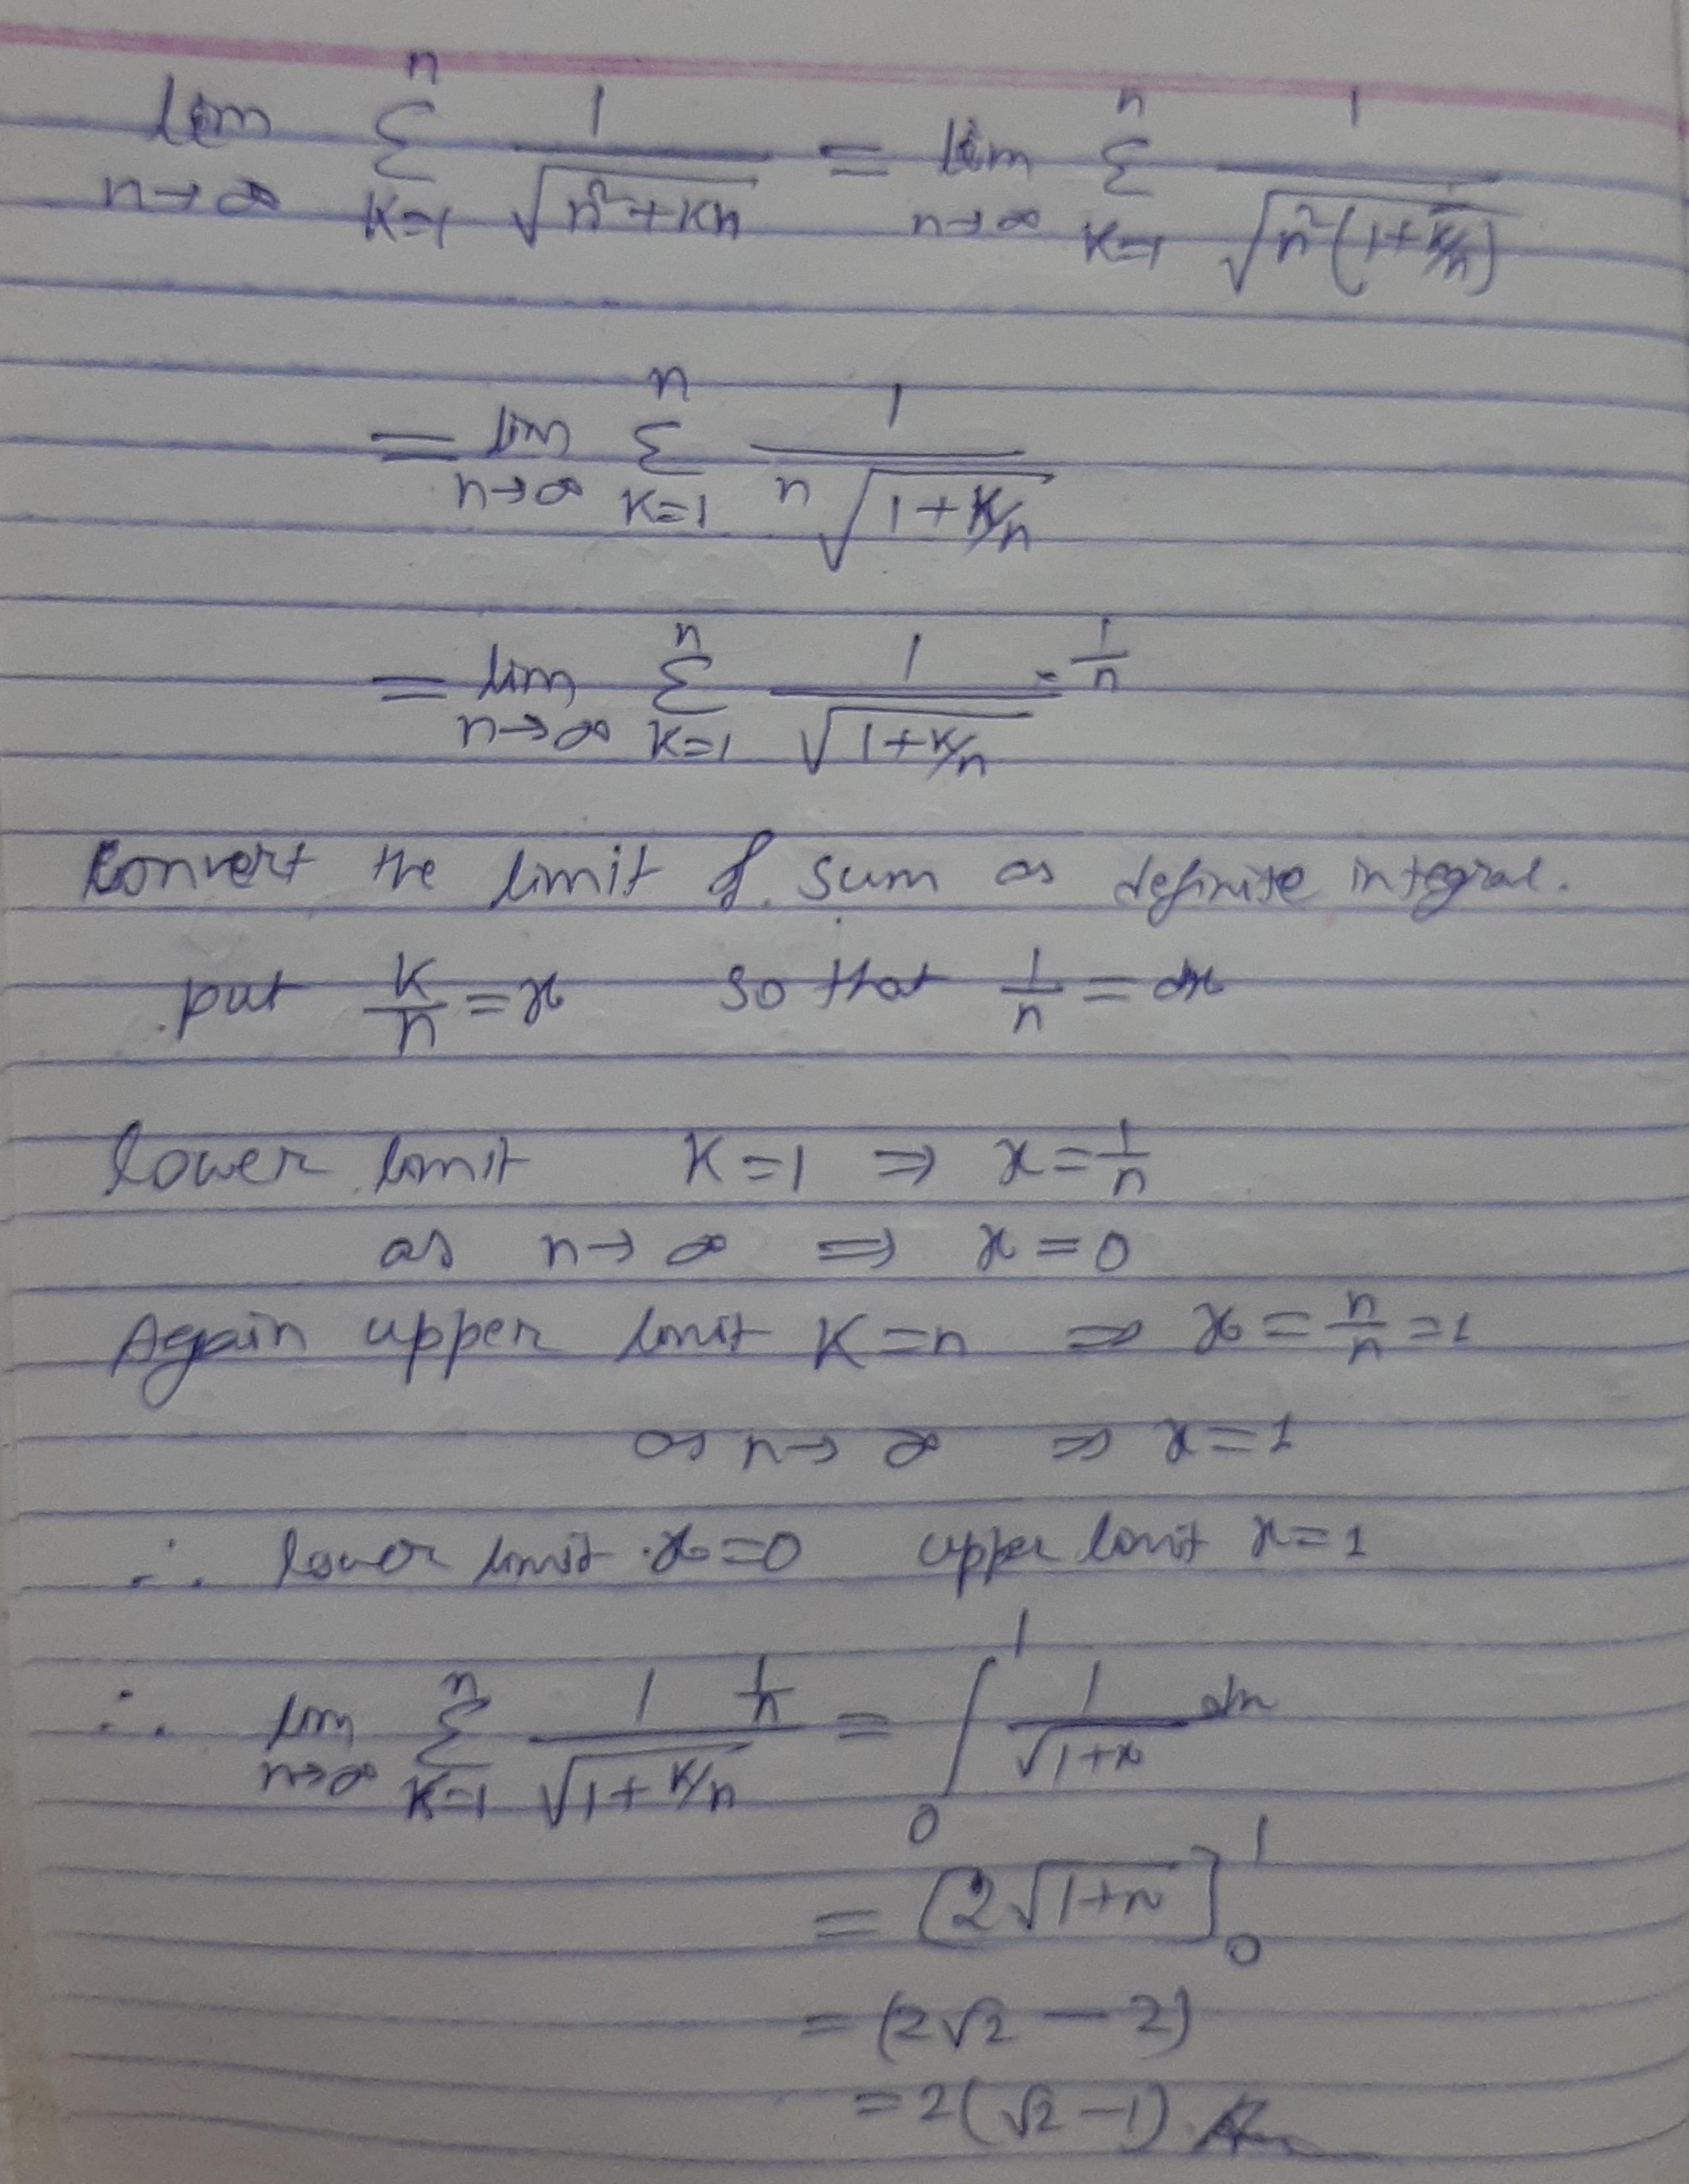 lim n→∞ n Σ K=1 1/√(n²+Kn) = lim n→∞ n Σ K=1 1/√(n²(1+K/n))
= lim n→∞ n Σ K=1 1/(n√(1+K/n))
= lim n→∞ n Σ K=1 1/√(1+K/n) · 1/n
Convert the limit of sum as definite integral.
put K/n = x so that 1/n = dx
lower limit K=1 ⇒ x = 1/n
as n→∞ ⇒ x=0
Again upper limit K=n ⇒ x = n/n = 1
as n→∞ ⇒ x=1
∴ lower limit x=0 upper limit x=1
∴ lim n→∞ n Σ K=1 1/√(1+K/n) 1/n = ∫₀¹ 1/√(1+x) dx
= [2√(1+x)]₀¹
= (2√2 - 2)
= 2(√2 - 1).